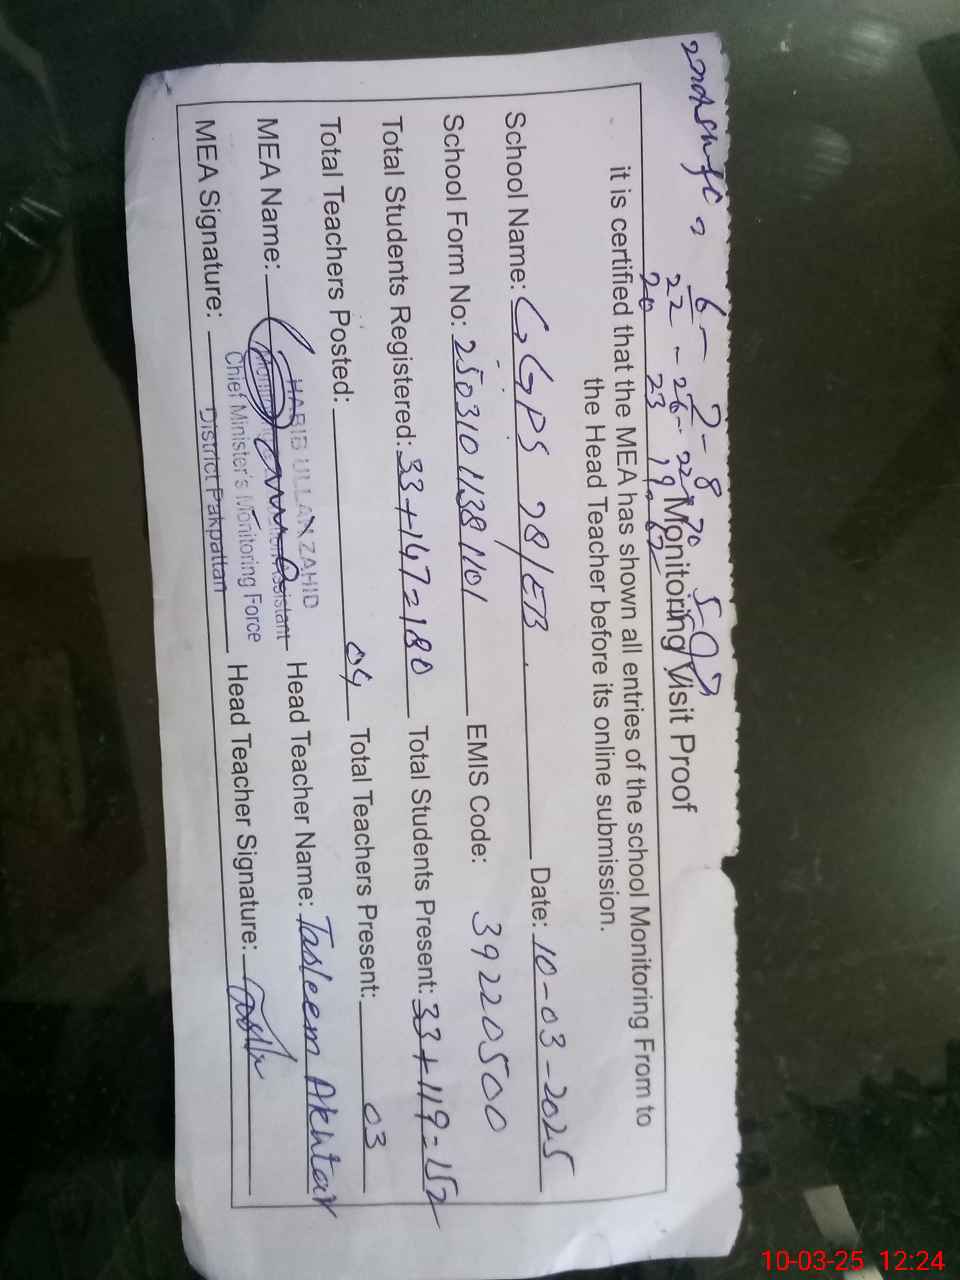 Monitoring Visit Proof
it is certified that the MEA has shown all entries of the school Monitoring From to
the Head Teacher before its online submission.
School Name: GGPS 28/EB. Date: 10-03-2025
School Form No: 25031011381101 EMIS Code: 39220500
Total Students Registered: 33+147=180 Total Students Present: 33+119=152
Total Teachers Posted: 04 Total Teachers Present: 03
MEA Name: HABIB ULLAH ZAHID Head Teacher Name: Tasleem Akhtar
Assistant
Chief Minister's Monitoring Force
MEA Signature: District Pakpattan Head Teacher Signature:
10-03-25 12:24